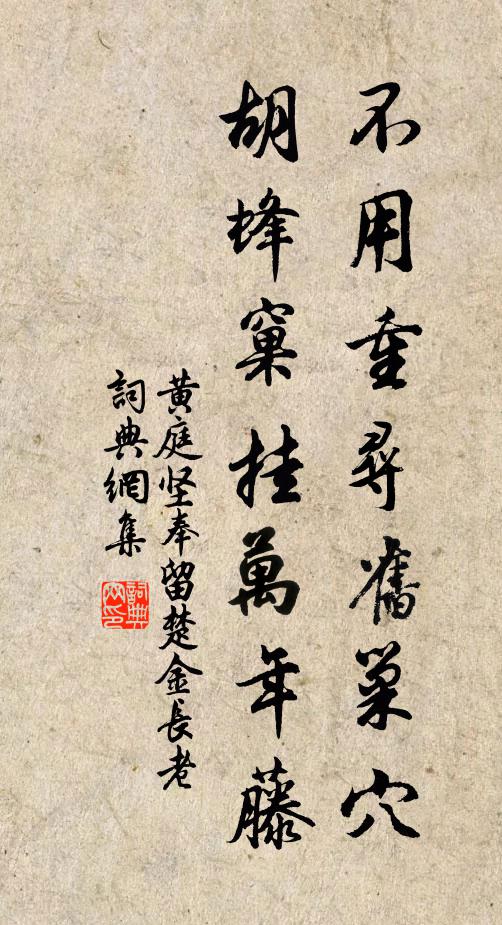 不用重尋舊巢穴
胡蜂窠挂萬年藤
黃庭坚奉留楚金長老
詞典網集
詞典
网印